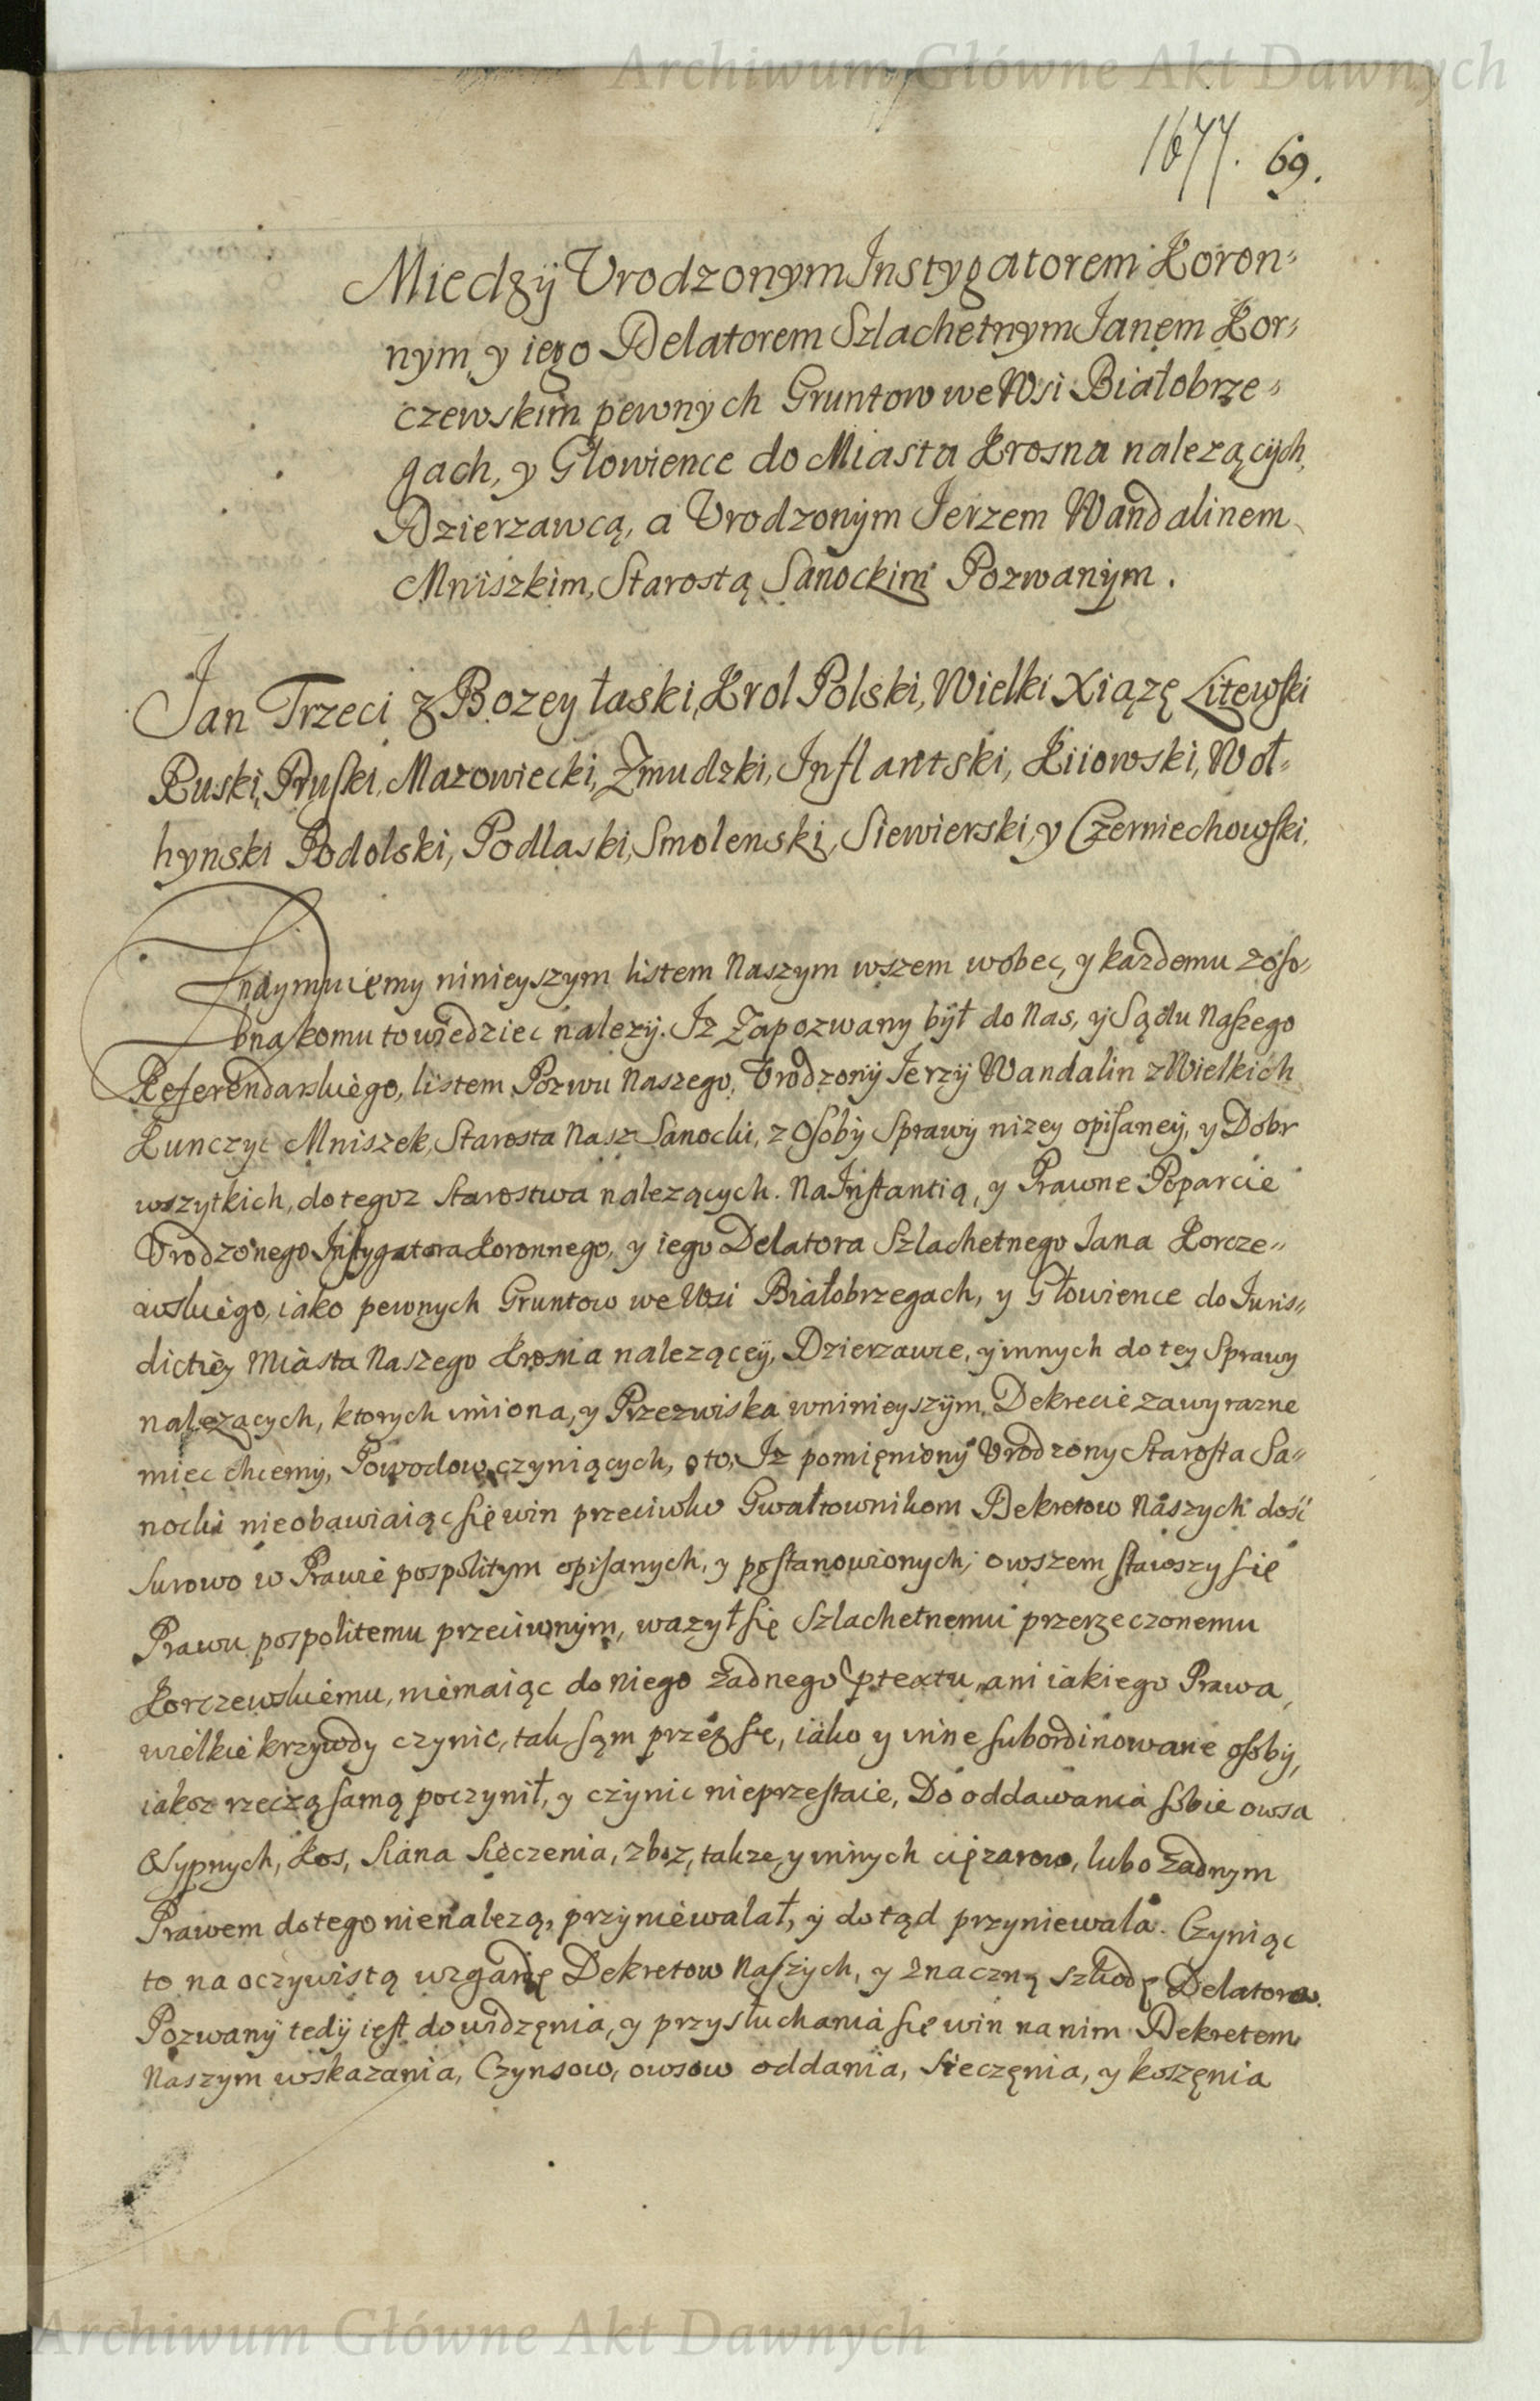 Archiwum Główne Akt Dawnych
1677. 69.
Miedzÿ Vrodzonym Instygatorem Koron=
nym, y iego Delatorem Szlachetnym Janem Kor=
czewskim pewnych Gruntow we Wsi Białobrze=
gach, y Głowience do Miasta Krosna nalezącÿch,
Dzierzawcą, a Vrodzonÿm Jerzem Wandalinem
Mniszkim, Starostą Sanockim Pozwanÿm.
Jan Trzeci z Bozey łaski, Krol Polski, Wielki Xiązę Litewski
Ruski, Pruski, Mazowiecki, Zmudzki, Inflantski, Kiiowski, Woł=
hynski Podolski, Podlaski, Smolenski, Siewierski, y Czerniechowski.
Znaymuięmy ninieyszym listem Naszym wszem wobec, y kazdemu zoso=
bna, komu to wiedziec nalezÿ. Iz Zapozwany bÿł do Nas, ÿ Sądu Naszego
Referendarskiego, listem Pozwu Naszego, Vrodzonÿ Jerzÿ Wandalin z Wielkich
Kunczyc Mniszek, Starosta Nasz Sanocki, z Osobÿ Sprawÿ nizey opisaneÿ, y Dobr
wszytkich, do tegoz Starostwa nalezących. Na Instantią, y Prawne Poparcie
Vrodzonego Instygatora Koronnego, y iego Delatora Szlachetnego Jana Korcze=
wskiego, iako pewnych Gruntow we Wsi Białobrzegach, y Głowience do Juris=
dictiey Miasta Naszego Krosna naleząceÿ, Dzierzawce, y innych do tey Sprawy
nalezących, ktorych imiona, y Przezwiska w ninieyszÿm Dekrecie za wyrazne
miec chcemy, Powodow czyniących, o to, Iz pomięnionÿ Vrodzony Starosta Sa=
nocki nieobawiaiąc się win przeciwko Gwałtownikom Dekretow Naszych dość
surowo w Prawie pospolitym opisanych, y postanowionych; owszem stawszy się
Prawu pospolitemu przeciwnÿm, wazył się Szlachetnemu przerzeczonemu
Korczewskiemu, niemaiąc do niego zadnego ptextu, ani iakiego Prawa,
wielkie krzywdy czynic, tak sąm przez się, iako y inne subordinowane osobÿ,
iakoz rzeczą samą poczynił, y czÿnic nieprzestaie, Do oddawania sobie owsa
Osypnych, kos, siana sieczenia, zboz, takze, y innych cięzarow, lubo zadnym
Prawem do tego nienalezą, przÿniewalał, ÿ dotąd przyniewala. Czyniąc
to na oczywistą wzgardę Dekretow Naszÿch, y znaczną szkodę Delatora.
Pozwanÿ tedÿ iest do widzęnia, y przysłuchania się win na nim Dekretem
Naszym wskazania, Czynsow, owsow oddania, Sieczęnia, y koszęnia
Archiwum Główne Akt Dawnych